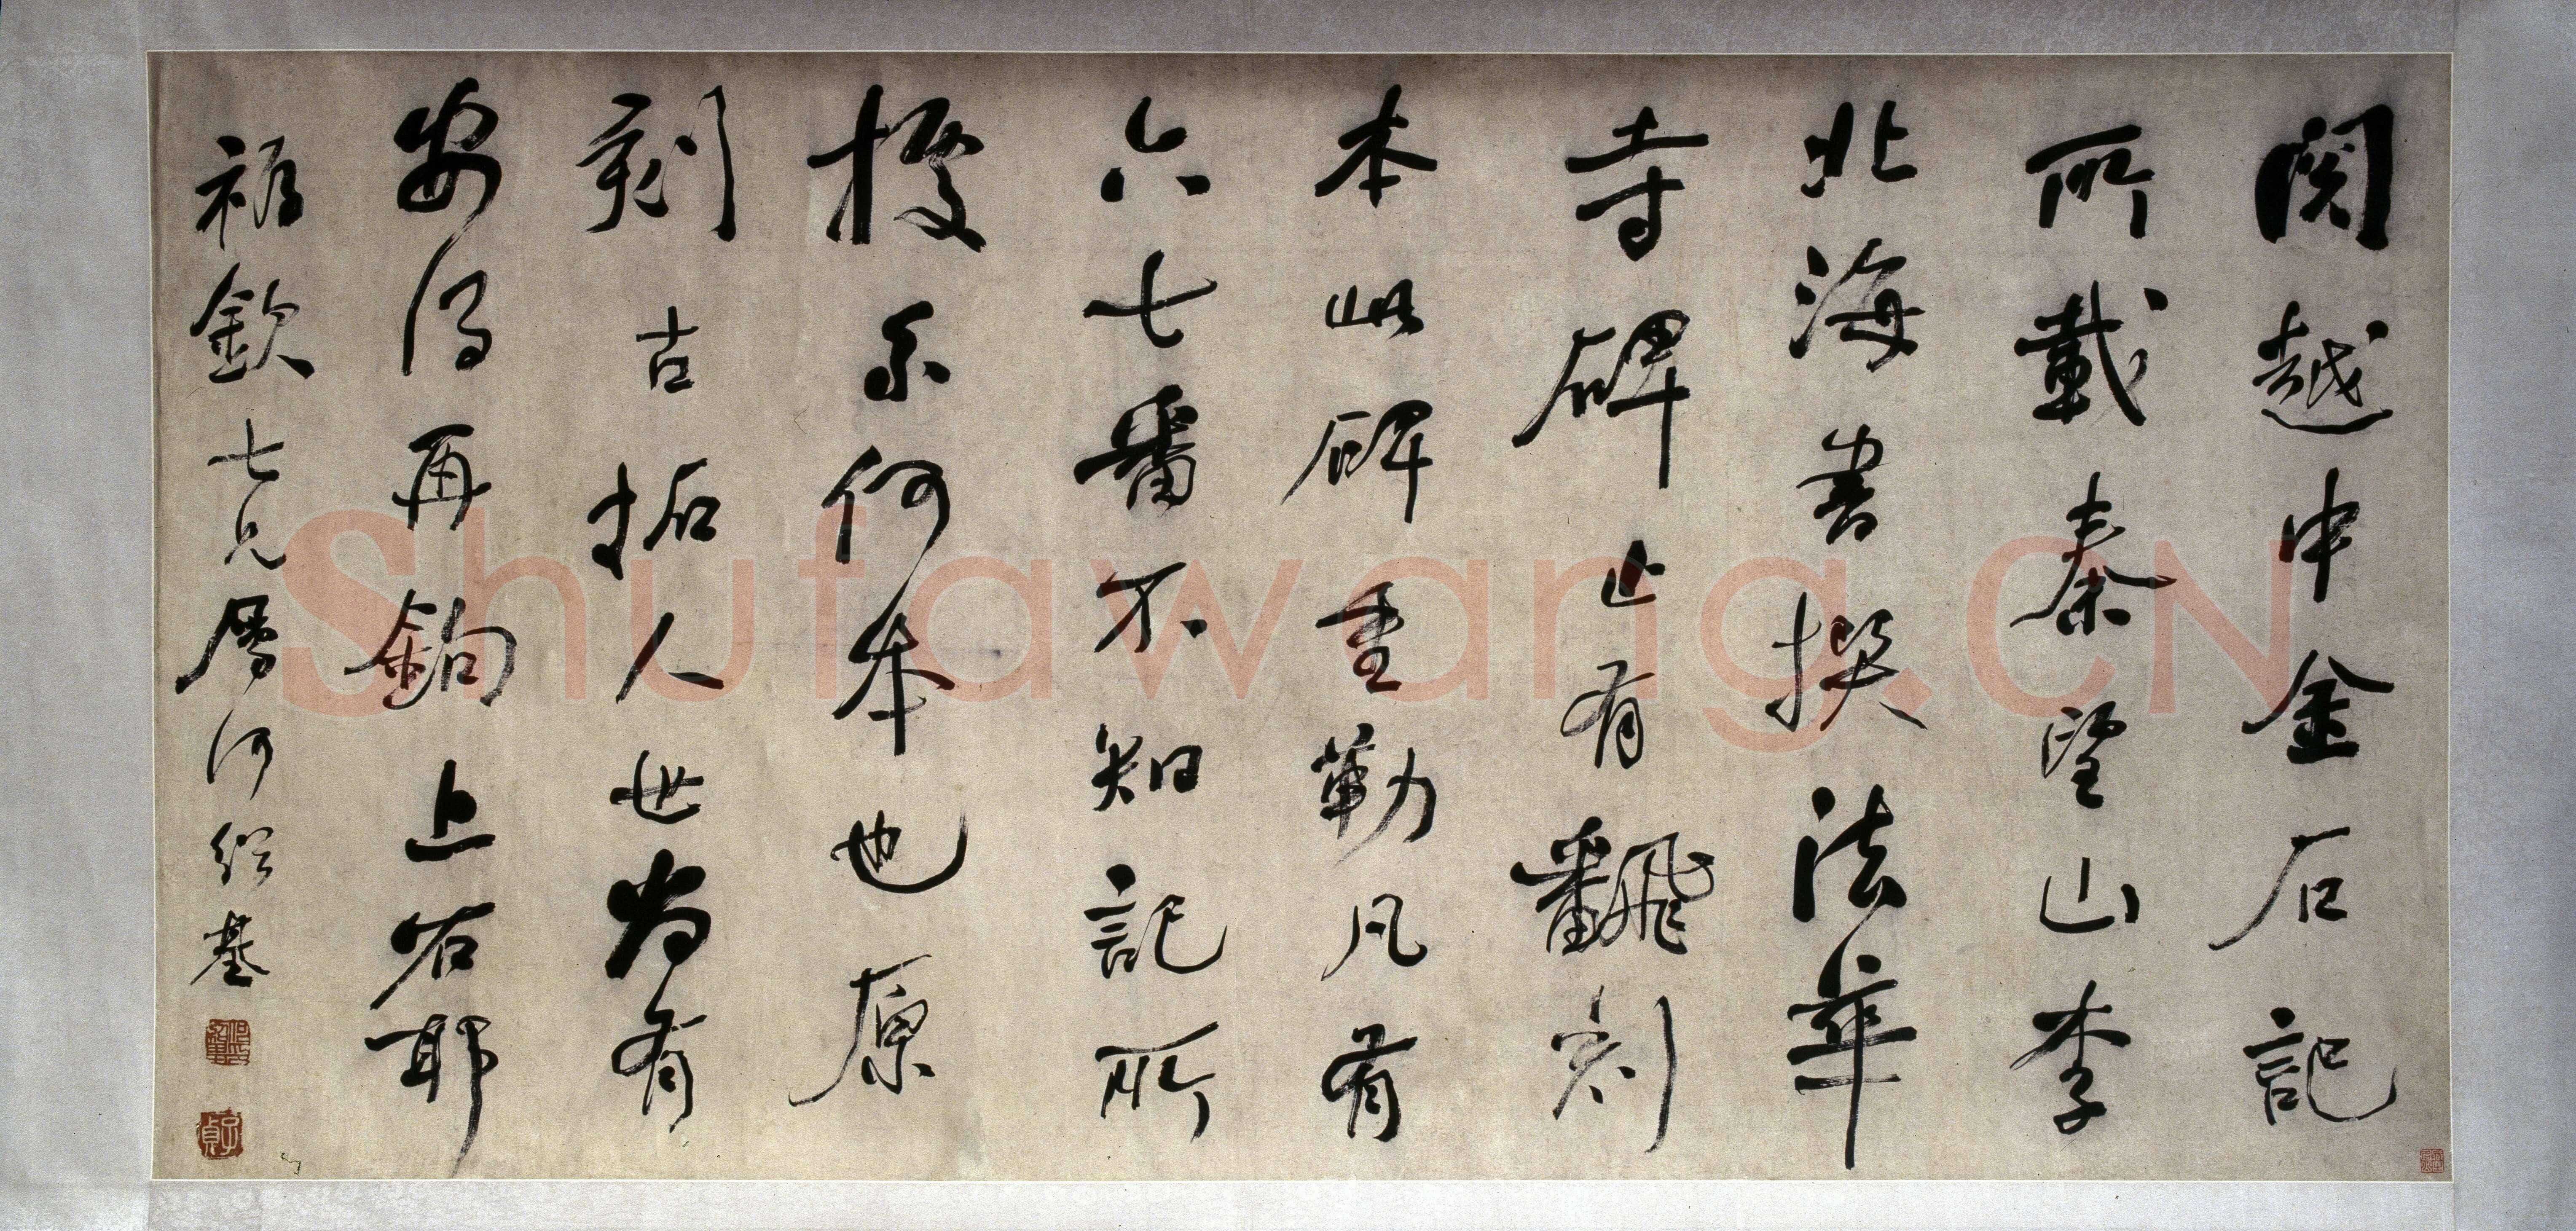 阅越中金石記
所載秦望山李
北海書撰法華
寺碑止有翻刻
本此碑重勒凡有
六七番不知記所
據系何本也原
刻古拓人世尚有
安得再鉤上石耶
福欽七兄屬何紹基
Shufawang.CN